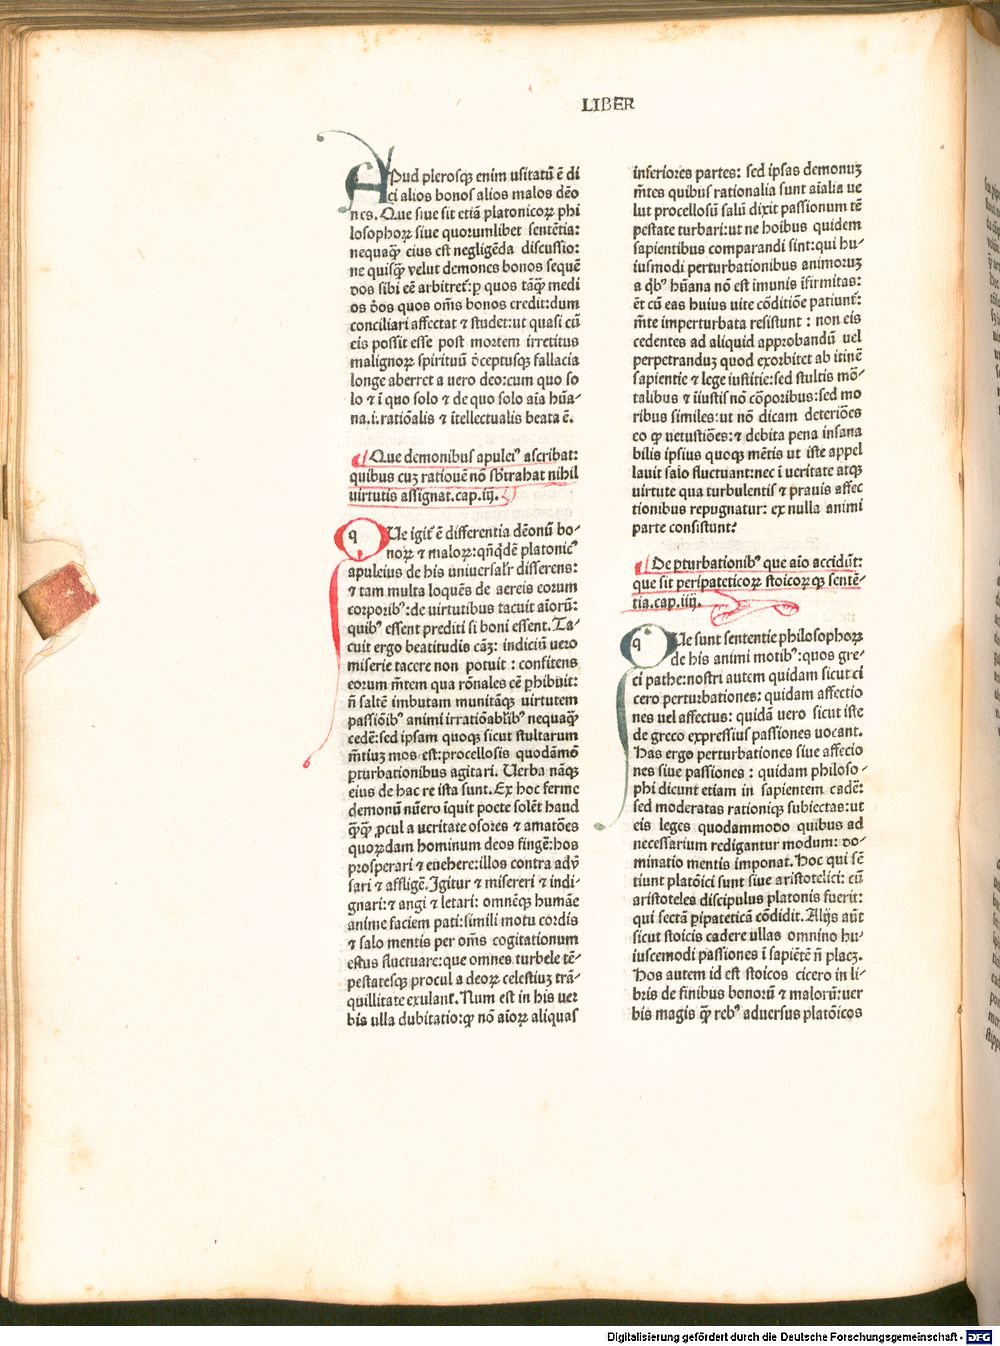 LIBER
APud plerosqꝫ enim usitatū ē di
ci alios bonos alios malos dēo
nes. Que siue sit etiā platonicoꝝ phi
losophoꝝ siue quorumlibet sentētia:
nequaꝙ̄ eius est negligēda discussio:
ne quisꝙ̄ velut demones bonos sequē
dos sibi eē arbitret᷑:ꝑ quos tāꝙ̄ medi
os d̄os quos om̄s bonos credit:dum
conciliari affectat ⁊ studet:ut quasi cū
eis possit esse post mortem irretitus
malignoꝝ spirituū d̄ceptusqꝫ fallacia
longe aberret a uero deo:cum quo so
lo ⁊ ī quo solo ⁊ de quo solo aīa hūa/
na.i.ratiōalis ⁊ ītellectualis beata ē.
¶Que demonibus apuleiꝰ ascribat:
quibus cuꝫ rationē nō sb̄trahat nihil
uirtutis assignat.cap.iij.
qUe igit᷑ ē differentia dēonū bo-
noꝝ ⁊ maloꝝ:qn̄q̇dē platonicꝰ
apuleius de his uniuersalr̄ differens:
⁊ tam multa loquēs de aereis eorum
corporibꝰ:de uirtutibus tacuit aīorū:
quibꝰ essent prediti si boni essent. Ta/
cuit ergo beatitudis cāꝫ: indiciū uero
miserie tacere non potuit : confitens
eorum m̄tem qua rōnales eē ꝑhibuit:
n̄ saltē imbutam munitāqꝫ uirtutem
passiōibꝰ animi irratiōabl̄ibꝰ nequaꝙ̄
cedē:sed ipsam quoqꝫ sicut stultarum
m̄tiuꝫ mos est:procellosis quodāmō
ꝑturbationibus agitari. Uerba nāqꝫ
eius de hac re ista sunt. Ex hoc ferme
demonū nūero īquit poete solēt haud
ꝙ̄ꝙ̄ ꝓcul a ueritate osores ⁊ amatōes
quoꝝdam hominum deos fingē:hos
prosperari ⁊ euehere:illos contra adv̄
sari ⁊ affligē. Igitur ⁊ misereri ⁊ indi/
gnari:⁊ angi ⁊ letari: omnēqꝫ humāe
anime faciem pati:simili motu cordis
⁊ salo mentis per om̄s cogitationum
estus fluctuare:que omnes turbele tē/
pestatesqꝫ procul a deoꝝ celestiuꝫ trā/
quillitate exulant᷑. Num est in his uer
bis ulla dubitatio:ꝙ nō aīoꝝ aliquas
inferiores partes: sed ipsas demonuꝫ
m̄tes quibus rationalia sunt aīalia ue
lut procellosū salū dixit passionum tē
pestate turbari:ut ne hoībus quidem
sapientibus comparandi sint:qui hu/
iusmodi perturbationibus animoruꝫ
a q̇bꝰ hūana nō est imunis īfirmitas:
ēt cū eas huius uite cōditiōe patiunt᷑:
m̄te imperturbata resistunt : non eis
cedentes ad aliquid approbandū uel
perpetranduꝫ quod exorbitet ab itinē
sapientie ⁊ lege iustitie:sed stultis mō/
talibus ⁊ īiustis nō cōꝑoribus:sed mo
ribus similes:ut nō dicam deteriōes
eo ꝙ uetustiōes:⁊ debita pena insana
bilis ipsius quoqꝫ mētis ut iste appel
lauit salo fluctuant:nec ī ueritate atqꝫ
uirtute qua turbulentis ⁊ prauis affec
tionibus repugnatur: ex nulla animi
parte consistunt?
¶De ꝑturbationibꝰ que aīo accidūt:
que sit peripateticoꝝ stoicoꝝqꝫ sentē/
tia.cap.iiij.
qUe sunt sententie philosophoꝝ
de his animi motibꝰ:quos gre/
ci pathe:nostri autem quidam sicut ci
cero perturbationes: quidam affectio
nes uel affectus: quidā uero sicut iste
de greco expressius passiones uocant.
Has ergo perturbationes siue affectio
nes siue passiones : quidam philoso/
phi dicunt etiam in sapientem cadē:
sed moderatas rationiqꝫ subiectas:ut
eis leges quodammodo quibus ad
necessarium redigantur modum: do/
minatio mentis imponat. Hoc qui sē
tiunt platōici sunt siue aristotelici: cū
aristoteles discipulus platonis fuerit:
qui sectā ꝑipateticā cōdidit. Alijs aūt
sicut stoicis cadere ullas omnino hu/
iuscemodi passiones ī sapiētē n̄ placꝫ.
Hos autem id est stoicos cicero in li/
bris de finibus bonorū ⁊ malorū:uer
bis magis ꝙ̄ rebꝰ aduersus platōicos
Digitalisierung gefördert durch die Deutsche Forschungsgemeinschaft - DFG